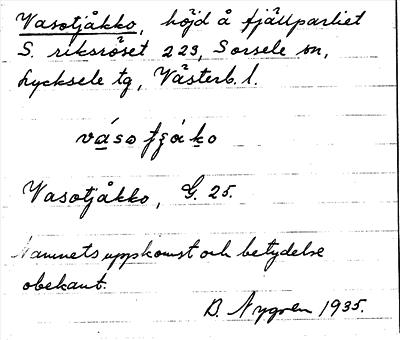 Vasotjåkko, höjd å fjällpartiet
S. riksröset 223, Sorsele sn,
Lycksele tg, Västerb. l.
Vasotjåkko, G. 25.
Namnets uppkomst och betydelse
obekant.
D. Nygren 1935.